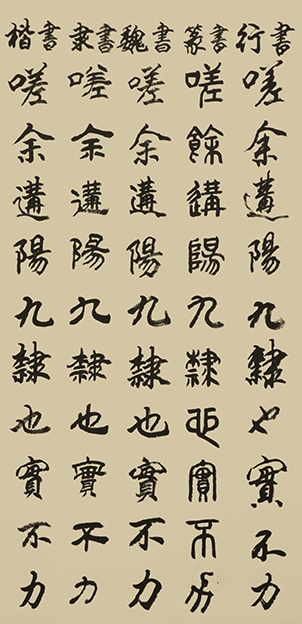 楷書
嗟余遘陽九隸也實不力
隶書
嗟余遘陽九隸也實不力
魏書
嗟余遘陽九隸也實不力
篆書
嗟餘遘陽九隸也實不力
行書
嗟余遘陽九隸也實不力